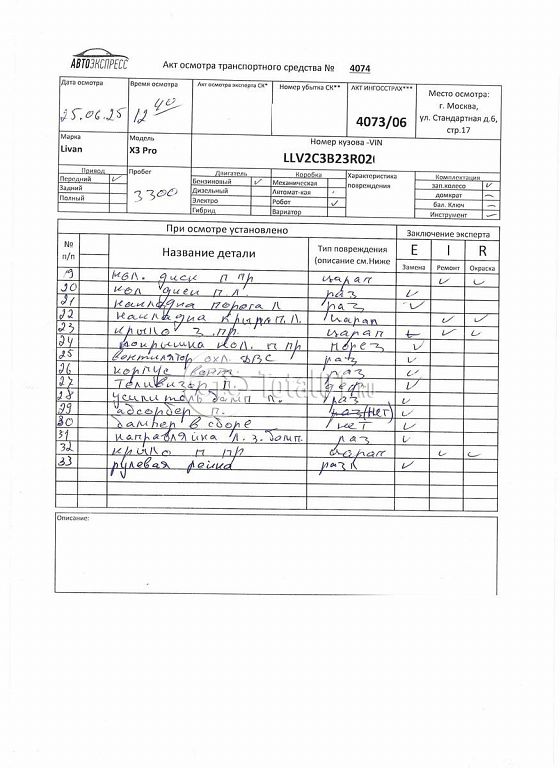 АВТОЭКСПРЕСС
Акт осмотра транспортного средства № 4074
Дата осмотра Время осмотра Акт осмотра эксперта СК* Номер убытка СК** АКТ ИНГОССТРАХ*** Место осмотра:
25.06.25 12 40 4073/06 г. Москва, ул. Стандартная д.6, стр.17
Марка Модель Номер кузова -VIN
Livan X3 Pro LLV2C3B23R02
Привод Пробег Двигатель Коробка Характеристика повреждения Комплектация
Передний ✓ 3300 Бензиновый ✓ Механическая зап.колесо ✓
Задний Дизельный Автомат-кая домкрат –
Полный Электро Робот ✓ бал. Ключ –
Гибрид Вариатор Инструмент ✓
При осмотре установлено Заключение эксперта
№ п/п Название детали Тип повреждения (описание см.Ниже E I R
Замена Ремонт Окраска
19 кол. диск п пр царап ✓ ✓
20 кол диск п л раз ✓
21 накладка порога л раз ✓
22 накладка крыла п.л. царап ✓ ✓
23 крыло з.пр. царап ✓ ✓
24 покрышка кол. п пр порез ✓
25 вентилятор охл. ДВС раз ✓
26 корпус вент. раз ✓
27 телевизор п. деф ✓
28 усилитель бамп п. раз ✓
29 абсорбер п. раз (нет) ✓
30 бампер в сборе нет ✓
31 направляйка л. з. бамп. раз ✓
32 крыло п пр царап ✓ ✓
33 рулевая рейка раз ✓
Описание: